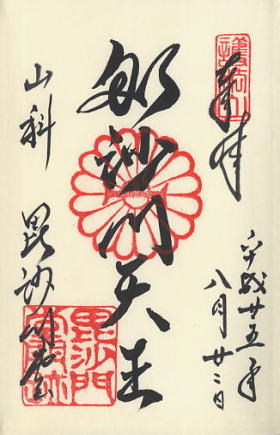 奉拝
平成廿五年
八月廿二日
毘沙門天王
山科
毘沙門堂
護法山
毘沙門堂門跡